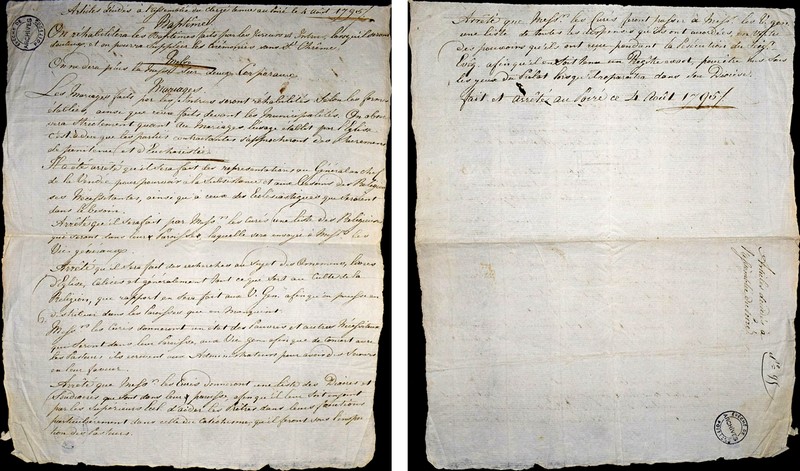 Articles étudiés à l'assemblée du clergé tenue au Loiré le 4 août 1795
Baptêmes
On réhabilitera les Baptêmes faits par les
et on pourra suppléer les cérémonies sans St Chrême
On ne dira plus la Messe sur deux Corporaux
Mariages
Les Mariages faits par les Intrus seront réhabilités selon les formes
établies, ainsi que ceux faits devant les Municipalités. On obser
vera strictement quant aux mariages l'usage établi par l'Eglise
c'est à dire que les parties contractantes s'approcheront des Sacremens
de pénitence et d'Eucharistie
Il a été arrêté qu'il sera fait des représentations au Général en chef
de la Vendée pour pourvoir à la Subsistance et aux Besoins des Religieu
ses Nécessitantes, ainsi qu'à ceux des Ecclésiastiques qui seroient
dans le besoin.
Arrêté qu'il sera fait par Messrs les Curés une liste des Religieuses
qui seront dans leur Paroisse, laquelle sera envoyée à Messrs les
Vic. généraux.
Arrêté qu'il sera fait des recherches au Sujet des Ornemens, livres
d'Eglise, calices et généralement tout ce qui sert au Culte de la
Religion, que rapport en sera fait aux V. Gen. afin qu'on puisse en
distribuer dans les paroisses qui en manquent.
Messrs les Curés donneront un état des pauvres et autres Nécessiteux
qui seront dans leur paroisse, aux Vic. gen. afin que de concert avec
les Pasteurs ils écrivent aux Administrateurs pour avoir des Secours
en leur faveur.
Arrêté que Messrs les Curés donneront une liste des Diacres et
Soudiacres qui sont dans leur paroisse, afin qu'il leur soit enjoint
par les Supérieurs d'aider les Prêtres dans leurs fonctions
particulièrement dans celle du Catéchisme, qu'ils feront sous l'inspec
tion des Pasteurs.
Arrêté que Messrs les Curés feront passer à Messrs les V. gen.
une liste de toutes les dispenses qu'ils ont accordées en vertu
des pouvoirs qu'ils ont reçu pendant la
afin qu'il en soit tenu un Registre exact, pour être mis sous
les yeux du Prélat lorsqu'il reparoîtra dans son Diocèse.
fait et arrêté au Loiré ce 4 Août 1795
Articles étudiés à
l'assemblée du Loiré